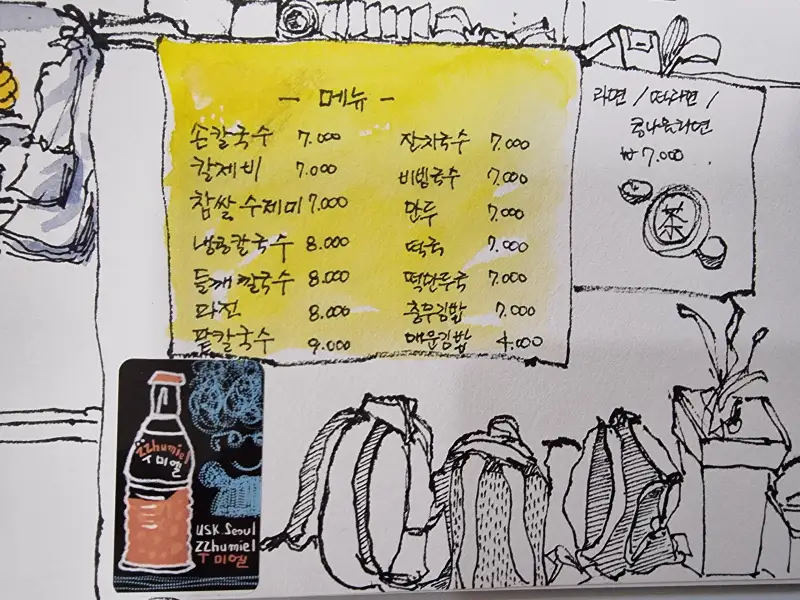 - 메뉴 -
손칼국수 7.000
칼제비 7.000
찹쌀수제미 7.000
냉콩칼국수 8.000
들깨칼국수 8.000
파전 8.000
팥칼국수 9.000
잔치국수 7.000
비빔국수 7.000
만두 7.000
떡국 7.000
떡만두국 7.000
충무김밥 7.000
매운김밥 4.000
라면 / 떡라면 /
콩나물라면
₩7.000
茶
zzhumiel
쭈미엘
USK.Seoul
zzhumiel
쭈미엘